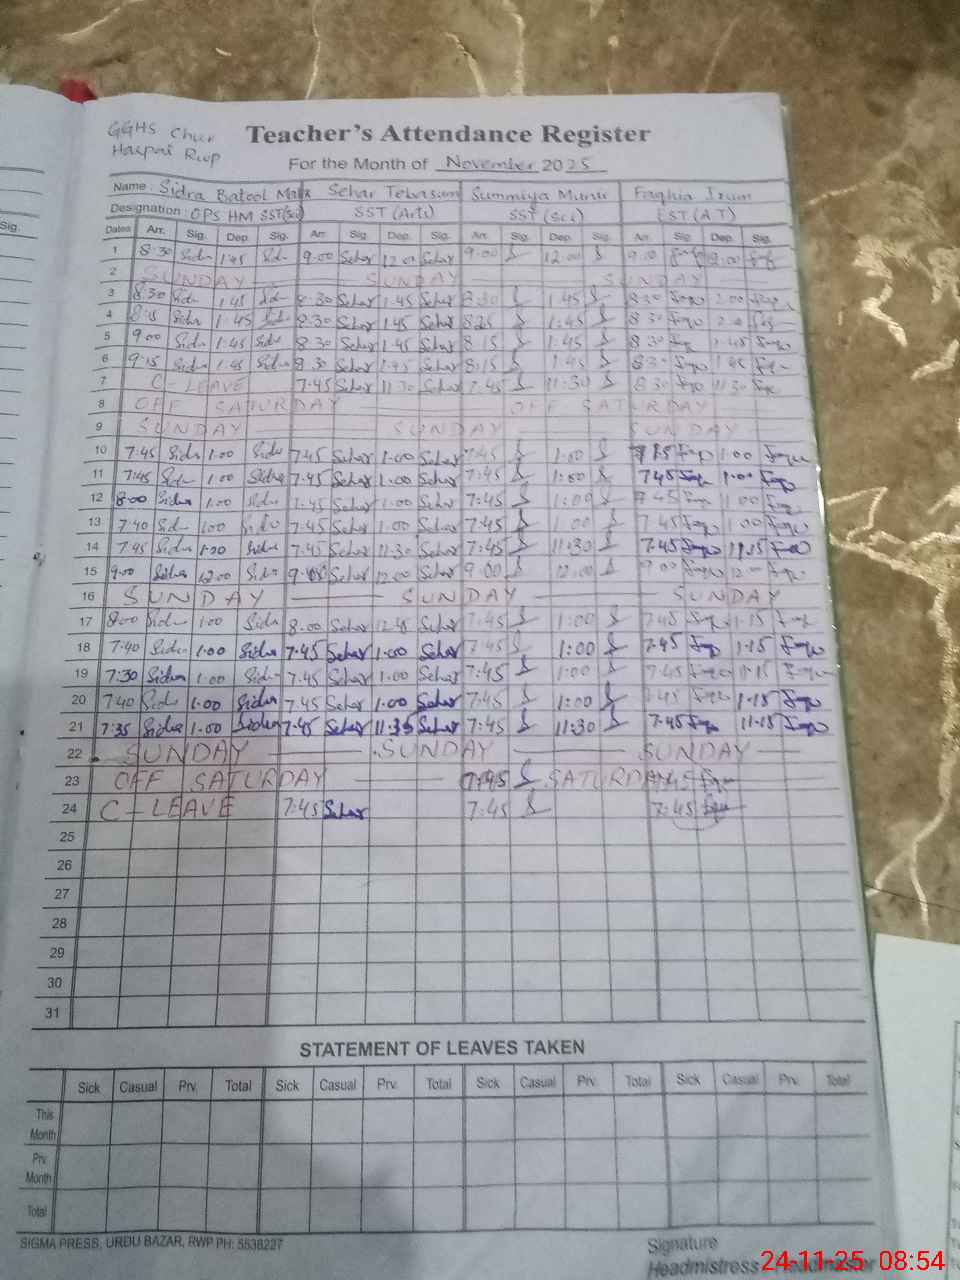 GGHS Chur
Teacher's Attendance Register
For the Month of November 2025
Name: Sidra Batool Malik Sehar Tebasum Summiya Munir Faqhia Irum
Designation: OPS HM SST(Sci) SST (Arts) SST (Sci) EST (A.T)
Dates Arr. Sig. Dep. Sig. Arr. Sig. Dep. Sig. Arr. Sig. Dep. Sig. Arr. Sig. Dep. Sig.
1 8:30 Sidra 1:45 Sidra 9:00 Sehar 12:00 Sehar 9:00 12:00
2 SUNDAY SUNDAY SUNDAY
3 8:30 Sidra 1:45 Sidra 8:30 Sehar 1:45 Sehar 8:30 1:45 8:30 2:00
4 8:15 Sidra 1:45 Sidra 8:30 Sehar 1:45 Sehar 8:25 1:45 8:30
5 9:00 Sidra 1:45 Sidra 8:30 Sehar 1:45 Sehar 8:15 1:45 8:30 1:45
6 9:15 Sidra 1:45 Sidra 8:30 Sehar 1:45 Sehar 8:15 1:45 8:30 1:45
7 C-LEAVE 7:45 Sehar 11:30 Sehar 7:45 11:30 8:30 11:30
8 OFF SATURDAY OFF SATURDAY
9 SUNDAY SUNDAY SUNDAY
10 7:45 Sidra 1:00 Sidra 7:45 Sehar 1:00 Sehar 7:45 1:00 1:00
11 7:45 Sidra 1:00 Sidra 7:45 Sehar 1:00 Sehar 7:45 1:00 7:45 1:00
12 8:00 Sidra 1:00 Sidra 7:45 Sehar 1:00 Sehar 7:45 1:00 7:45 1:00
13 7:40 Sidra 1:00 Sidra 7:45 Sehar 1:00 Sehar 7:45 1:00 7:45 1:00
14 7:45 Sidra 1:00 Sidra 7:45 Sehar 11:30 Sehar 7:45 11:30 7:45 11:15
15 9:00 Sidra 12:00 Sidra Sehar 12:00 Sehar 9:00 12:00 9:00 12:00
16 SUNDAY SUNDAY SUNDAY
17 8:00 Sidra 1:00 Sidra 8:00 Sehar 12:45 Sehar 7:45 1:00 7:45 1:15
18 7:40 Sidra 1:00 Sidra 7:45 Sehar 1:00 Sehar 7:45 1:00 7:45 1:15
19 7:30 Sidra 1:00 Sidra 7:45 Sehar 1:00 Sehar 7:45 1:00 7:45 1:15
20 7:40 Sidra 1:00 Sidra 7:45 Sehar 1:00 Sehar 7:45 1:00 7:45 1:15
21 7:35 Sidra 1:00 Sidra 7:45 Sehar Sehar 7:45 11:30 7:45 11:15
22 SUNDAY SUNDAY SUNDAY
23 OFF SATURDAY 7:45 SATURDAY
24 C-LEAVE 7:45 Sehar 7:45 7:45
25
26
27
28
29
30
31
STATEMENT OF LEAVES TAKEN
Sick Casual Prv. Total Sick Casual Prv. Total Sick Casual Prv. Total Sick Casual Prv. Total
This Month
Prv. Month
Total
SIGMA PRESS, URDU BAZAR, RWP PH: 5538227
Signature
Headmistress / Headmaster
24-11-25 08:54